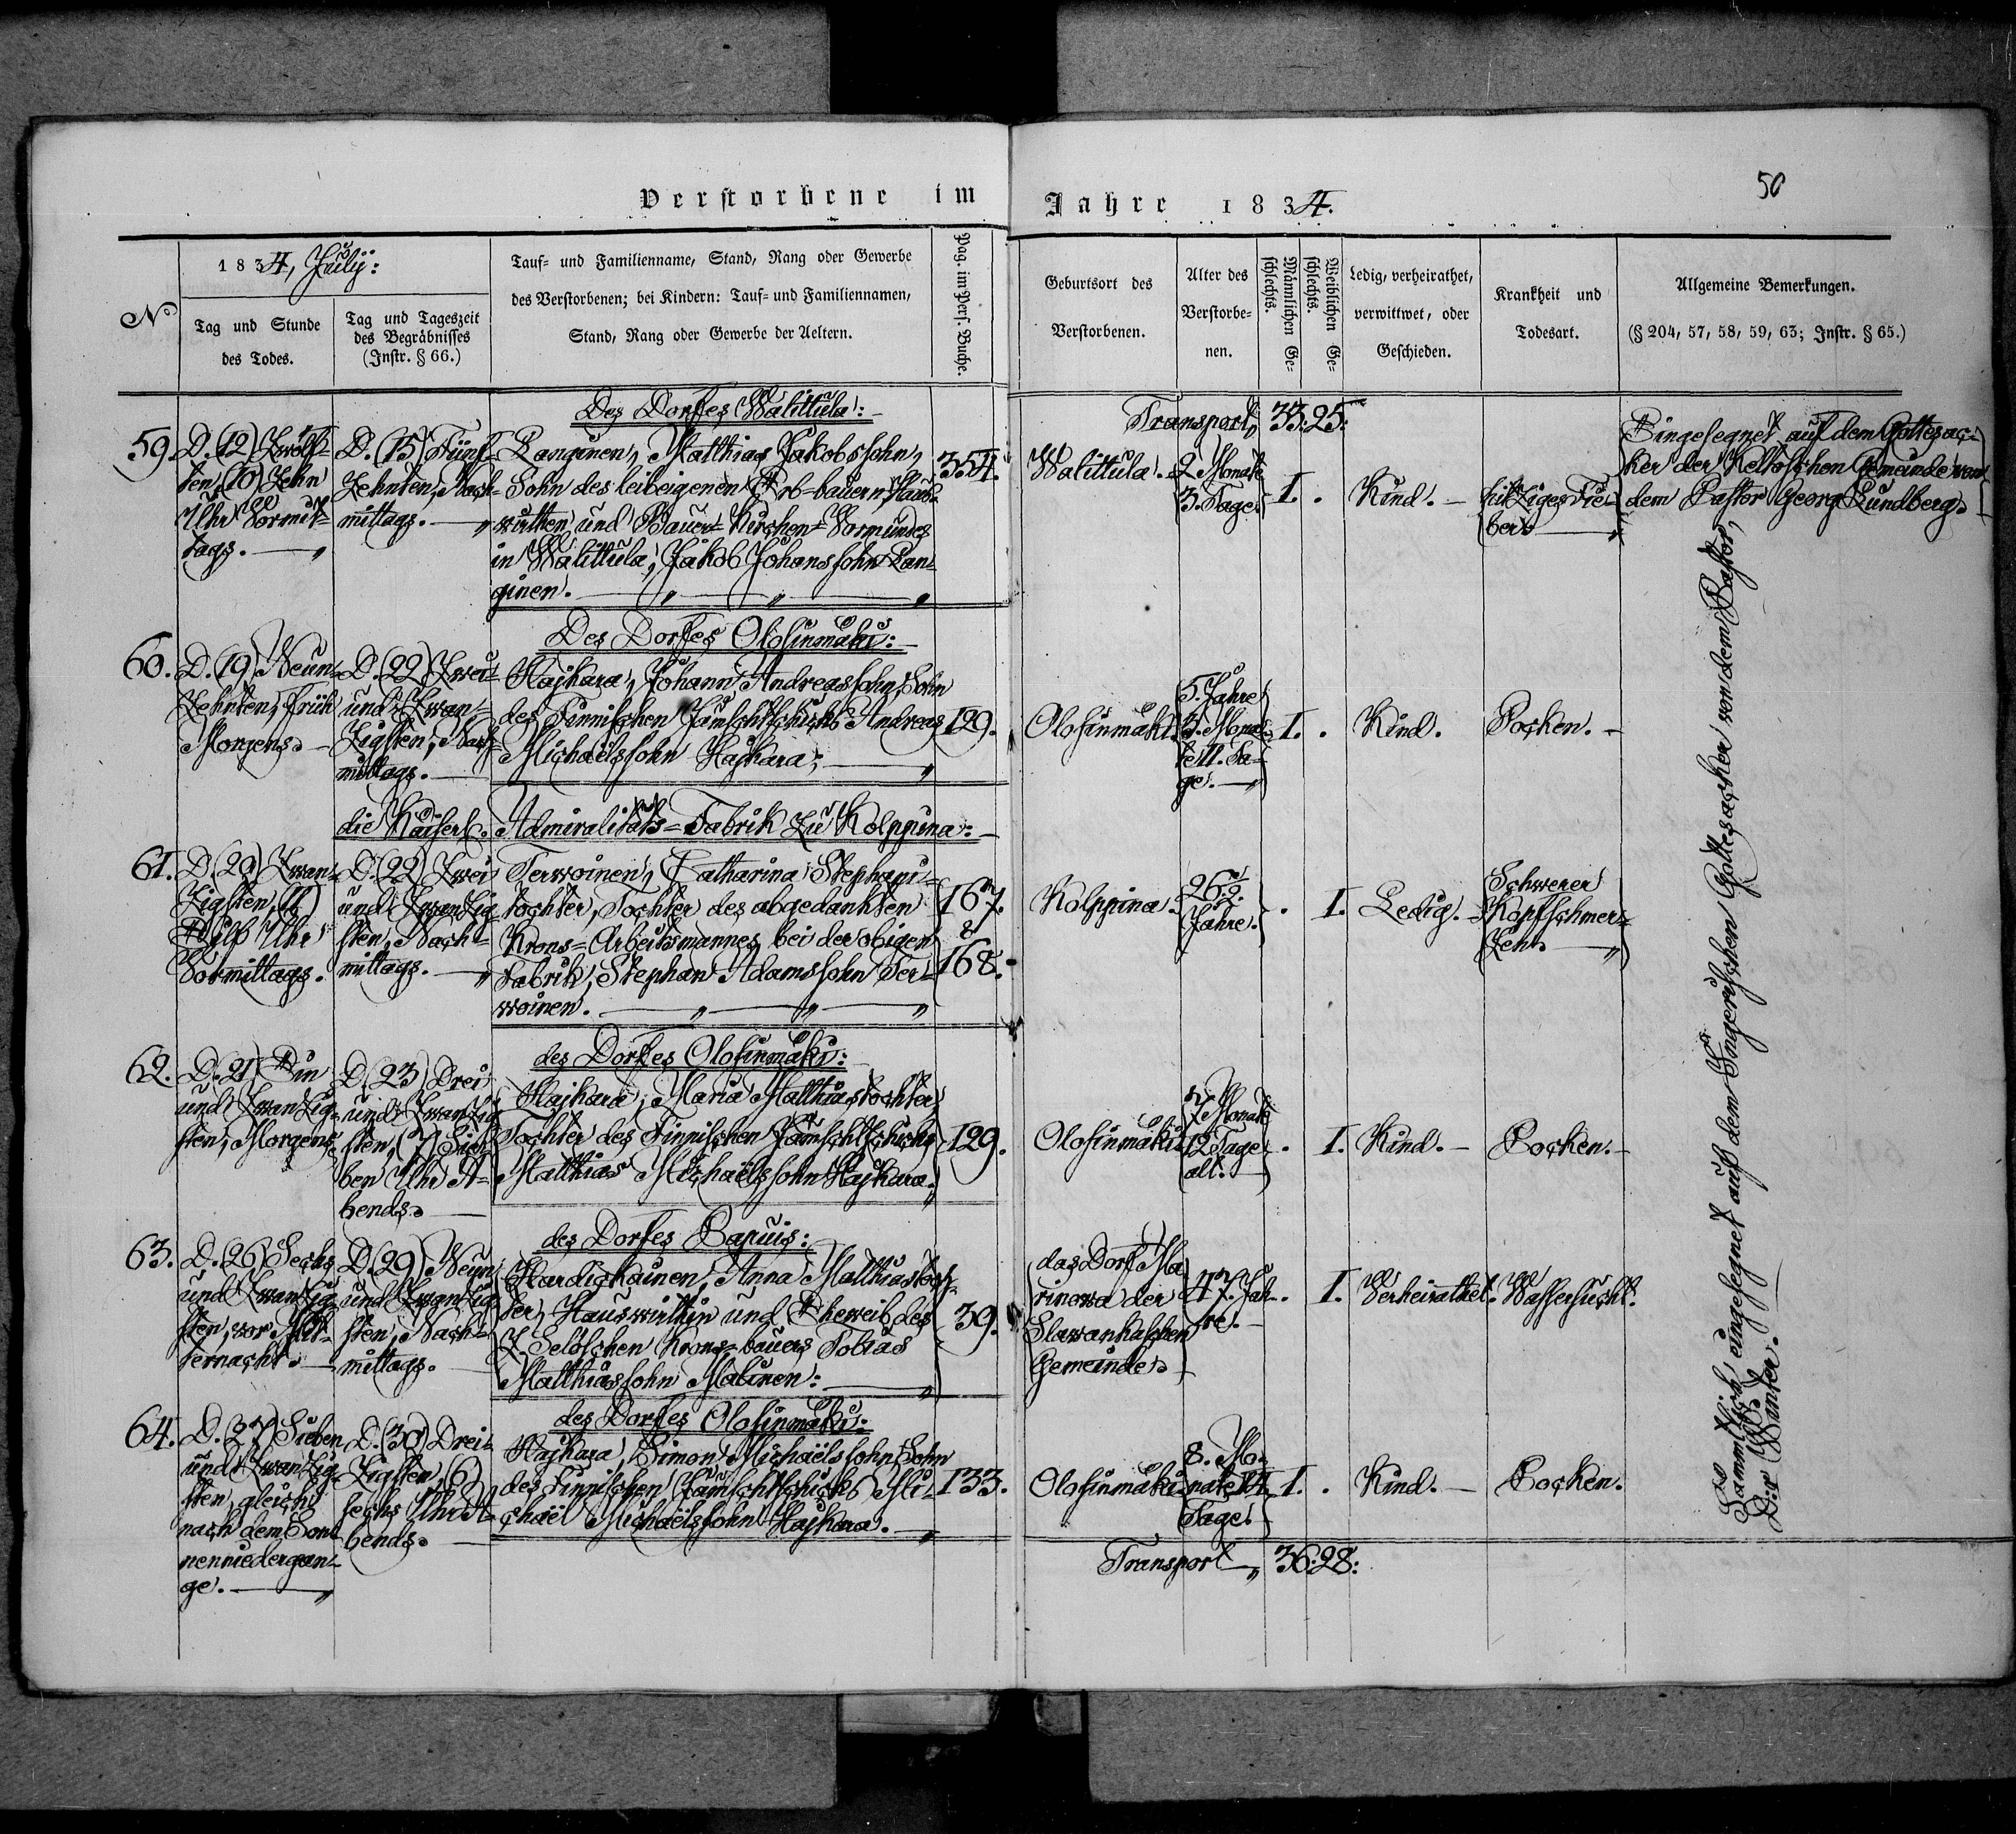 Verstorbene im Jahre 1834.
50
N
1834, July:
Tag und Stunde
des Todes.
Tag und Tageszeit
des Begräbnisses
(Instr. § 66.)
Tauf- und Familienname, Stand, Rang oder Gewerbe
des Verstorbenen; bei Kindern: Tauf- und Familiennamen,
Stand, Rang oder Gewerbe der Aeltern.
Pag. im Pers. Buche.
Geburtsort des
Verstorbenen.
Alter des
Verstorbe-
nen.
Männlichen Ge-
schlechts.
Weiblichen Ge-
schlechts.
Ledig, verheirathet,
verwittwet, oder
Geschieden.
Krankheit und
Todesart.
Allgemeine Bemerkungen.
(§ 204, 57, 58, 59, 63; Instr. § 65.)
Des Dorfes Walittula:
Transport, 33: 25:
59.
D. (12) Zwölf-
ten, (10) Zehn
Uhr Vormit-
tags.
D. (15) Fünf-
zehnten, Nach-
mittags.
Ranginen, Matthias Jakobssohn,
Sohn des leibeigenen Erb-bauern, Haus-
wirthen und Bauer-Kirchen-Vormundes
in Walittula, Jakob Johanssohn Ran-
ginen.
354.
Walittula.
2 Monate
3. Tage.
I.
Kind.
hitziges Fie-
ber.
Eingesegnet auf dem Gottesac-
ker der Keltoschen Gemeinde von
dem Pastor Georg Lundberg.
Des Dorfes Olosinmäki:
60.
D. (19) Neun-
zehnten, früh
Morgens.
D. (22) Zwei-
und Zwan-
zigsten, Nach-
mittags.
Hajkara, Johann Andreassohn, Sohn
des Finnischen Jamschtschicks Andreas
Michaëlssohn Hajkara;
129.
Olosinmäki.
5. Jahre
5. Mona-
te 11. Ta-
ge.
I.
Kind.
Pocken.
die Kaiserl. Admiralitäts-Fabrik zu Kolppina:
61.
D. (20) Zwan-
zigsten, (11)
Eilf Uhr
Vormittags.
D. (22) Zwei
und Zwanzig-
sten, Nach-
mittags.
Terwoinen, Catharina Stephani-
tochter, Tochter des abgedankten
Krons-Arbeitsmannes bei der obigen
Fabrik, Stephan Adamssohn Ter-
woinen.
167.
&
168.
Kolppina.
26 1/2
Jahre.
I.
Ledig.
Schwerer
Kopfschmer-
zen.
des Dorfes Olosinmäki:
62.
D. 21) Ein
und Zwanzig-
sten, Morgens.
D. (23) Drei
und Zwanzig
sten, (7) Sie-
ben Uhr A-
bends.
Hajkara, Maria Matthiastochter,
Tochter des Finnischen Jamschtschicks
Matthias Michaëlssohn Hajkara.
129.
Olosinmäki
7 Monate
12 Tage
alt.
I.
Kind.
Pocken.
des Dorfes Papuis:
63.
D. (26) Sechs
und Zwanzig-
sten, vor Mit-
ternacht.
D. (29) Neun
und Zwanzig-
sten, Nach-
mittags.
Hardigkainen, Anna Matthiastoch-
ter, Hauswirthin und Eheweib des
Z. Seloschen Krons-bauers Tobias
Matthiassohn Malinen:
39.
das Dorf Ma
rinowa der
Slawankaschen
Gemeinde.
47. Jah-
re.
I.
Verheirathet.
Wassersucht.
des Dorfes Olosinmäki:
64.
D. (27) Sieben
und Zwanzig-
sten, gleich
nach dem Son-
nenniedergan-
ge.
D. (30) Drei-
zigsten, (6)
sechs Uhr A-
bends.
Hajkara, Simon Michaëlssohn, Sohn
des Finnischen Jamschtschicks Mi-
chaël Michaëlssohn Hajkara.
133.
Olosinmäki
8. Mo-
nate 14
Tage.
I.
Kind.
Pocken.
Sammtlich eingesegnet auf dem Ingerischen Gottesacker von dem Pastor,
D:r Winter.
Transport, 36: 28: